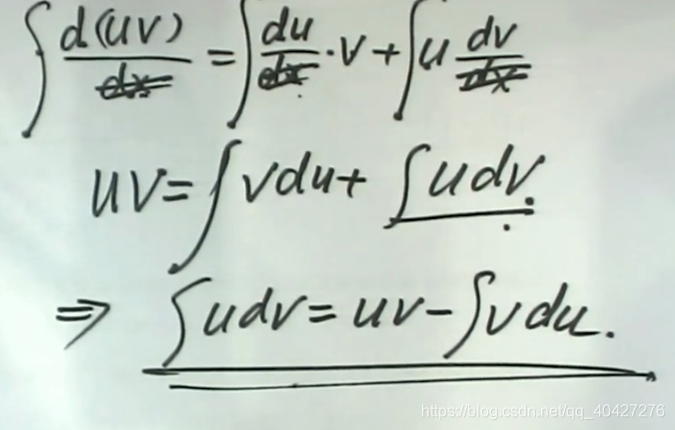 ∫ d(uv)/dx = ∫ du/dx · v + ∫ u dv/dx
uv = ∫ v du + ∫ u dv.
⇒ ∫ u dv = uv − ∫ v du.
https://blog.csdn.net/qq_40427276